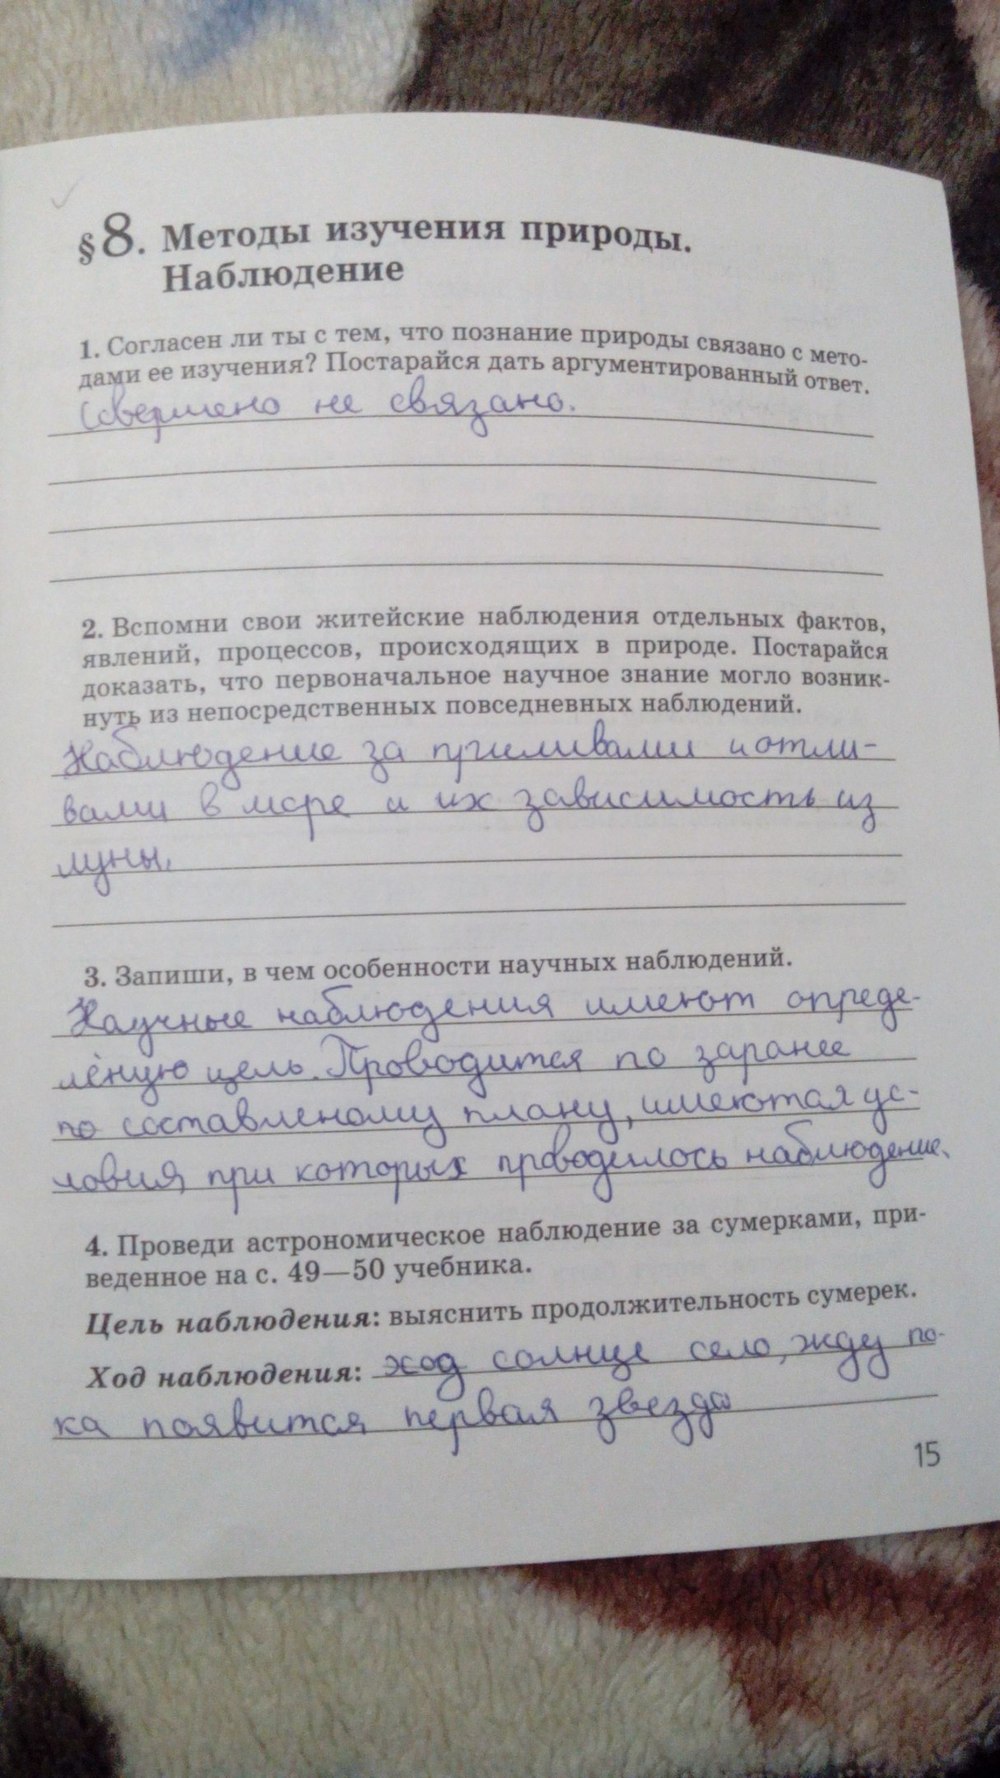 §8. Методы изучения природы.
Наблюдение
1. Согласен ли ты с тем, что познание природы связано с мето-
дами ее изучения? Постарайся дать аргументированный ответ.
Совершено не связано.
2. Вспомни свои житейские наблюдения отдельных фактов,
явлений, процессов, происходящих в природе. Постарайся
доказать, что первоначальное научное знание могло возник-
нуть из непосредственных повседневных наблюдений.
Наблюдение за приливами и отли-
вами в море и их зависимость из
луны.
3. Запиши, в чем особенности научных наблюдений.
Научные наблюдения имеют опреде-
лёную цель. Проводится по заранее
по составленому плану, имеются ус-
ловия при которых проводилось наблюдение.
4. Проведи астрономическое наблюдение за сумерками, при-
веденное на с. 49—50 учебника.
Цель наблюдения: выяснить продолжительность сумерек.
Ход наблюдения: ход солнце село, жду по-
ка появится первая звезда
15